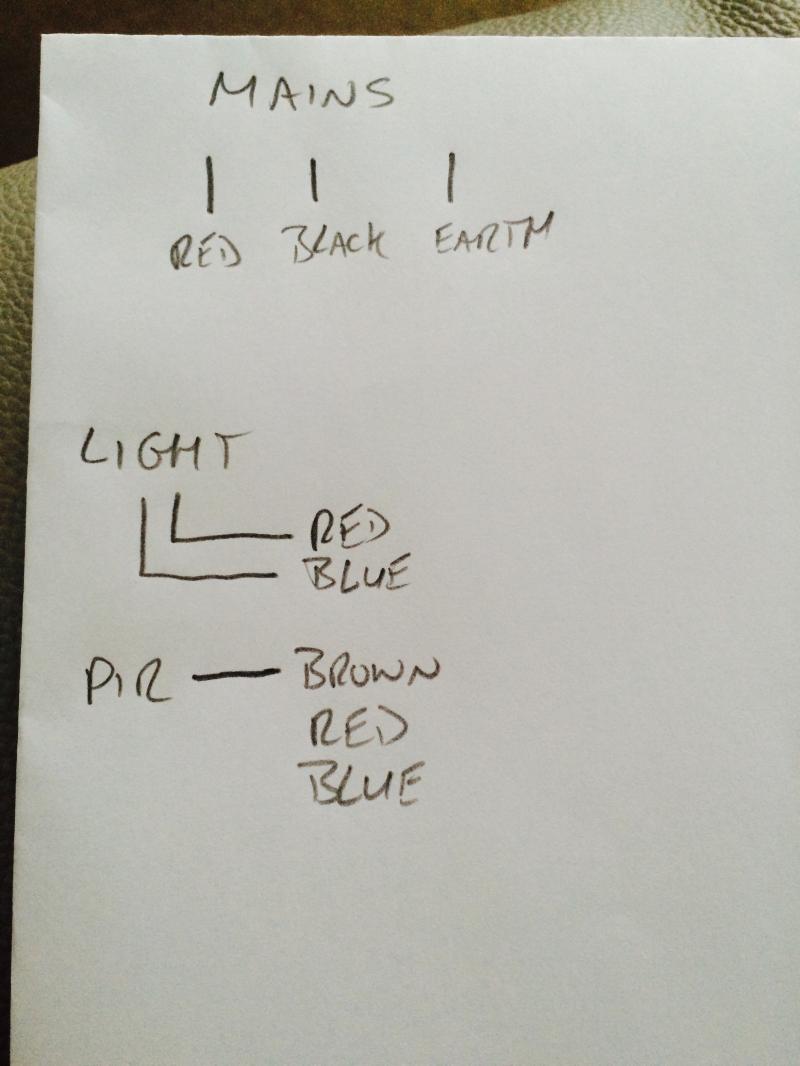 MAINS
RED BLACK EARTH
LIGHT
RED
BLUE
PIR — BROWN
RED
BLUE